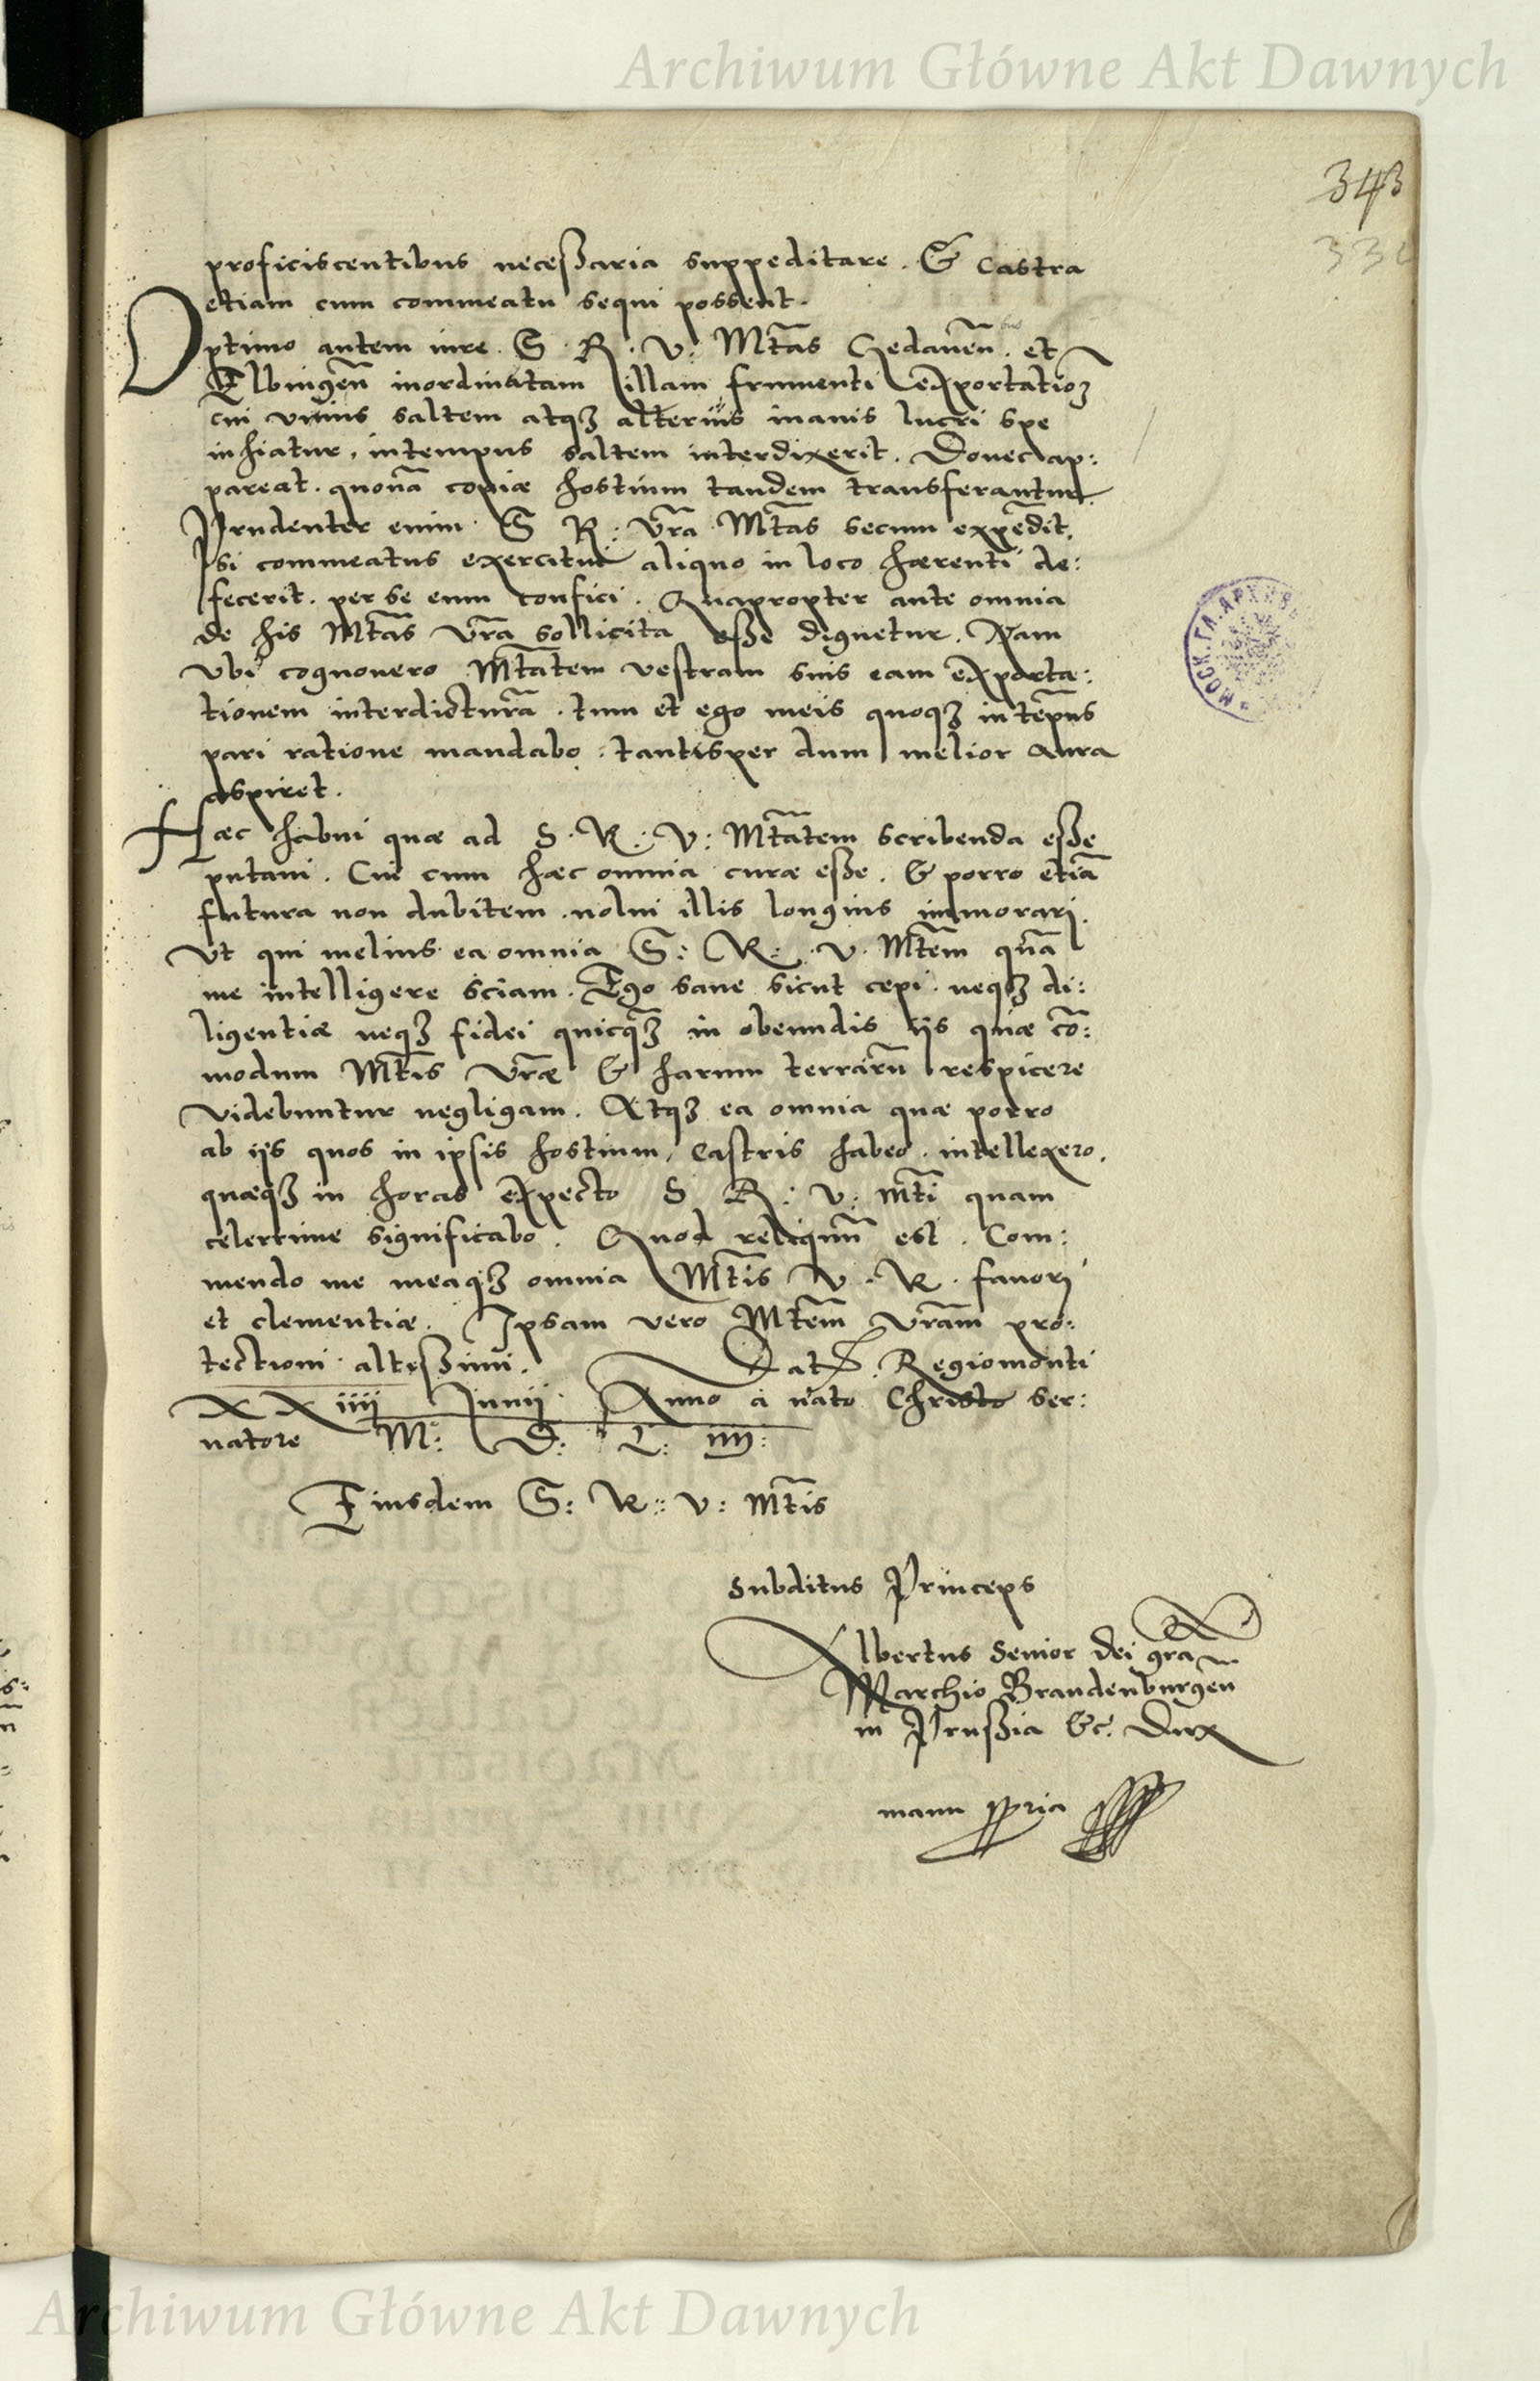 Archiwum Główne Akt Dawnych
343
proficiscentibus necessaria suppeditare. & Castra
etiam cum commeatu sequi possent.
Optimo autem iure. S. R. V. Mtãs Gedaneñ. et
Elbingeñ inordinatam illam frumenti exportatioꝫ
cui unius saltem atqꝫ alterius inanis lucri spe
inhiatur, in tempus saltem interdixerit. Donec ap:
pareat. quonã copiæ hostium tandem transferantur.
Prudenter enim S R: Vr̃a Mtãs secum expẽdit,
si commeatus exercitui aliquo in loco hærenti de:
fecerit. per se eum confici. Quapropter ante omnia
de his Mtãs Vr̃a sollicita esse dignetur. Nam
Vbi cognouero Mtãtem vestram suis eam exporta:
tionem interdicturã. tum et ego meis quoqꝫ in tẽpus
pari ratione mandabo. tantisper dum melior aura
aspiret.
Hæc habui quæ ad S. R. V: Mtãtem scribenda esse
putaui. Cui cum hæc omnia curæ esse. & porro etiã
futura non dubitem. nolui illis longius immorari.
Vt qui melius ea omnia S: R: V. Mtẽm quã
me intelligere sciam. Ego sane sicut cepi. neqꝫ di:
ligentiæ neqꝫ fidei quicqꝫ in obeundis iis quæ cõ:
modum Mtĩs Vr̃æ & harum terrarũ respicere
videbuntur negligam. Atqꝫ ea omnia quæ porro
ab ijs quos in ipsis hostium, Castris habeo. intellexero,
quæqꝫ in horas expecto S R: V: mtĩ quam
celerrime significabo. Quod reliquũ est. Com:
mendo me meaqꝫ omnia Mtĩs V. R. fauori
et clementiæ. Ipsam vero Mtẽm Vrãm pro:
tectioni altissimi. Dat. Regiomonti
XX iiij Junij Anno a nato Christo ser:
uatore M: D: L: IIII:
Eiusdem S: R: V: Mtĩs
Subditus Princeps
Albertus Senior Dei gr̃a
Marchio Brandenburgeñ
in Prussia &c. Dux
manu ppria
МОСК. ГЛ. АРХИВЪ
Archiwum Główne Akt Dawnych